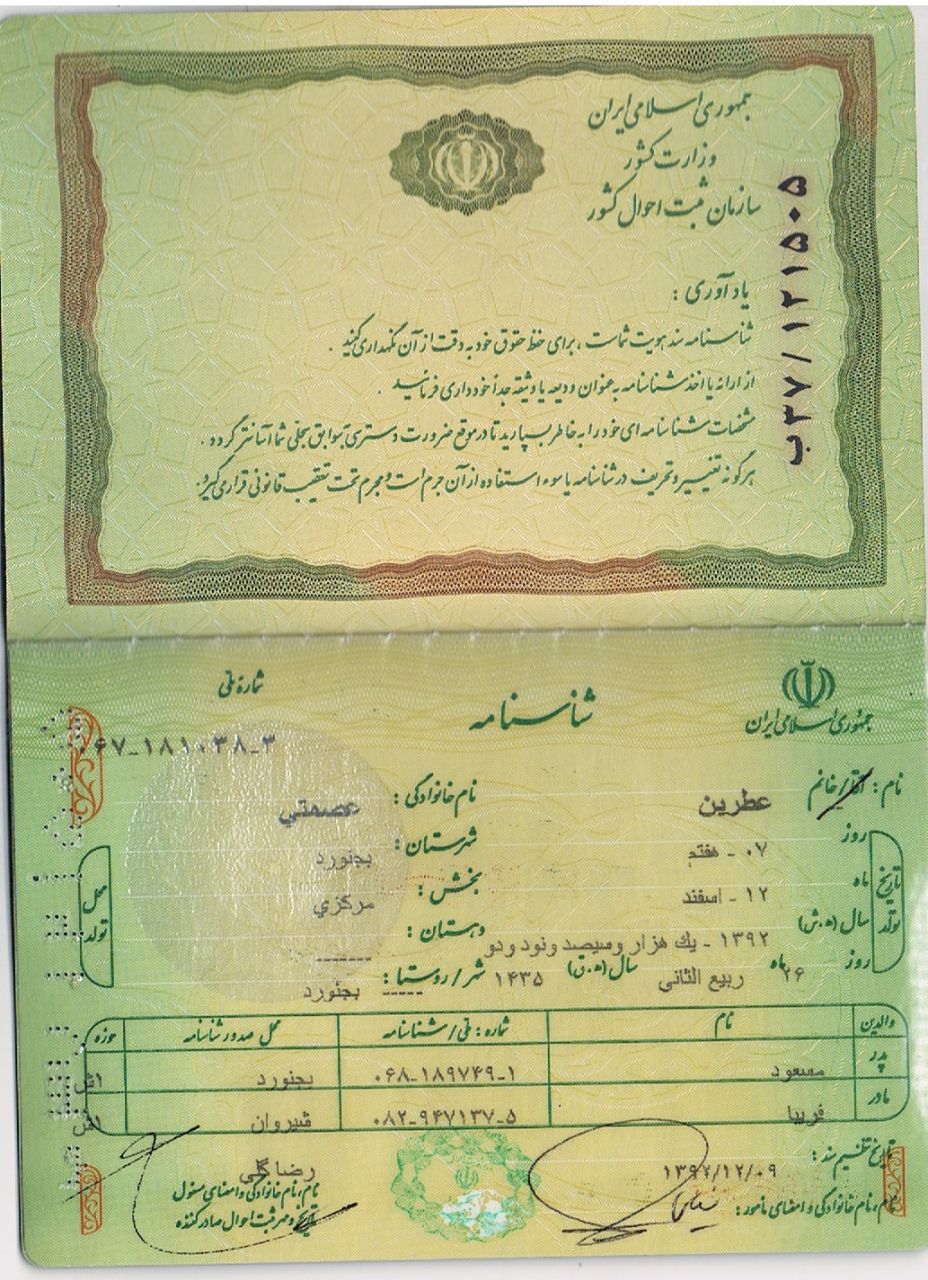 جمهوری اسلامی ایران
وزارت کشور
سازمان ثبت احوال کشور
ب۳۷/۱۲۱۵۰۵
یادآوری :
شناسنامه سند هویت شماست ، برای حفظ حقوق خود به دقت از آن نگهداری کنید .
از ارائه یا اخذ شناسنامه به عنوان ودیعه یا وثیقه جداً خودداری فرمائید .
مشخصات شناسنامه ای خود را به خاطر بسپارید تا در موقع ضرورت دسترسی بسوابق سجلی شما آسانتر گردد .
هرگونه تغییر و تحریف در شناسنامه یا سوء استفاده از آن جرم است و مجرم تحت تعقیب قانونی قرار میگیرد .
جمهوری اسلامی ایران
شناسنامه
شماره ملی
۰۶۷-۱۸۱۰۳۸-۳
نام : آقا/خانم عطرین نام خانوادگی : عصمتي
تاریخ تولد
روز ۰۷ - هفتم
ماه ۱۲ - اسفند
سال (ه.ش) ۱۳۹۲ - يك هزار وسيصد ونود ودو
روز ۲۶ ماه ربيع الثاني سال (ه.ق) ۱۴۳۵
محل تولد
شهرستان : بجنورد
بخش : مركزي
دهستان : -------
شهر/روستا : ----- بجنورد
والدین نام شماره : ملی/شناسنامه محل صدور شناسنامه حوزه
پدر مسعود ۰۶۸-۱۸۹۷۴۹-۱ بجنورد اش
مادر فريبا ۰۸۲-۹۴۷۱۳۷-۵ شيروان اش
تاریخ تنظیم سند : ۱۳۹۲/۱۲/۰۹
نام، نام خانوادگی و امضای مامور :
رضا گلي
نام، نام خانوادگی و امضای مسئول
تاریخ و مهر ثبت احوال صادرکننده